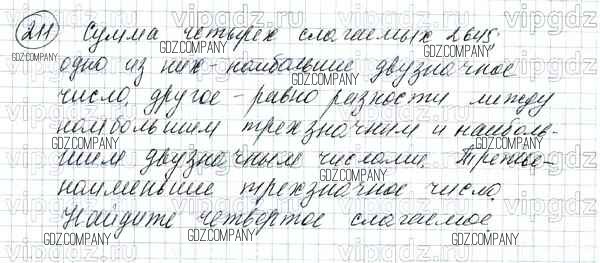 211 Сумма четырех слагаемых 2645,
одно из них - наибольшие двузначное
число, другое - равно разности между
наибольшием трехзначним и наиболь-
шием двузначным числами. Третье -
наименьшие трехзначное число.
Найдите четвертое слагаемое.